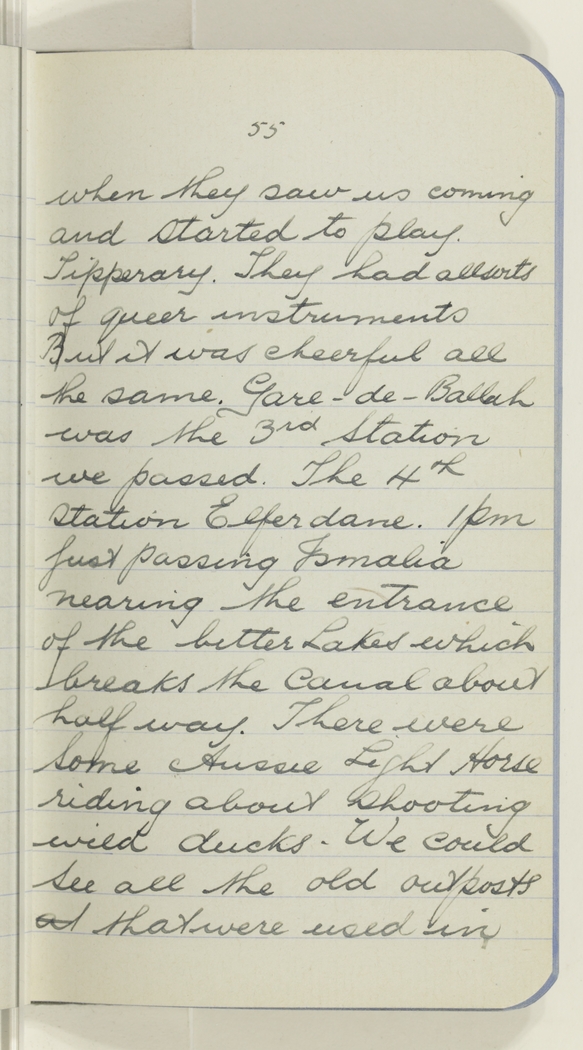 55
when they saw us coming
and started to play.
Tipperary. They had allsorts
of queer instruments
But it was cheerful all
the same. Gare-de-Ballah
was the 3rd Station
we passed. The 4th
Station Elferdane. 1pm
Just passing Ismalia
nearing the entrance
of the bitter Lakes which
breaks the Canal about
half way. There were
Some Aussie Light Horse
riding about shooting
wild ducks. We could
See all the old outposts
at that were used in